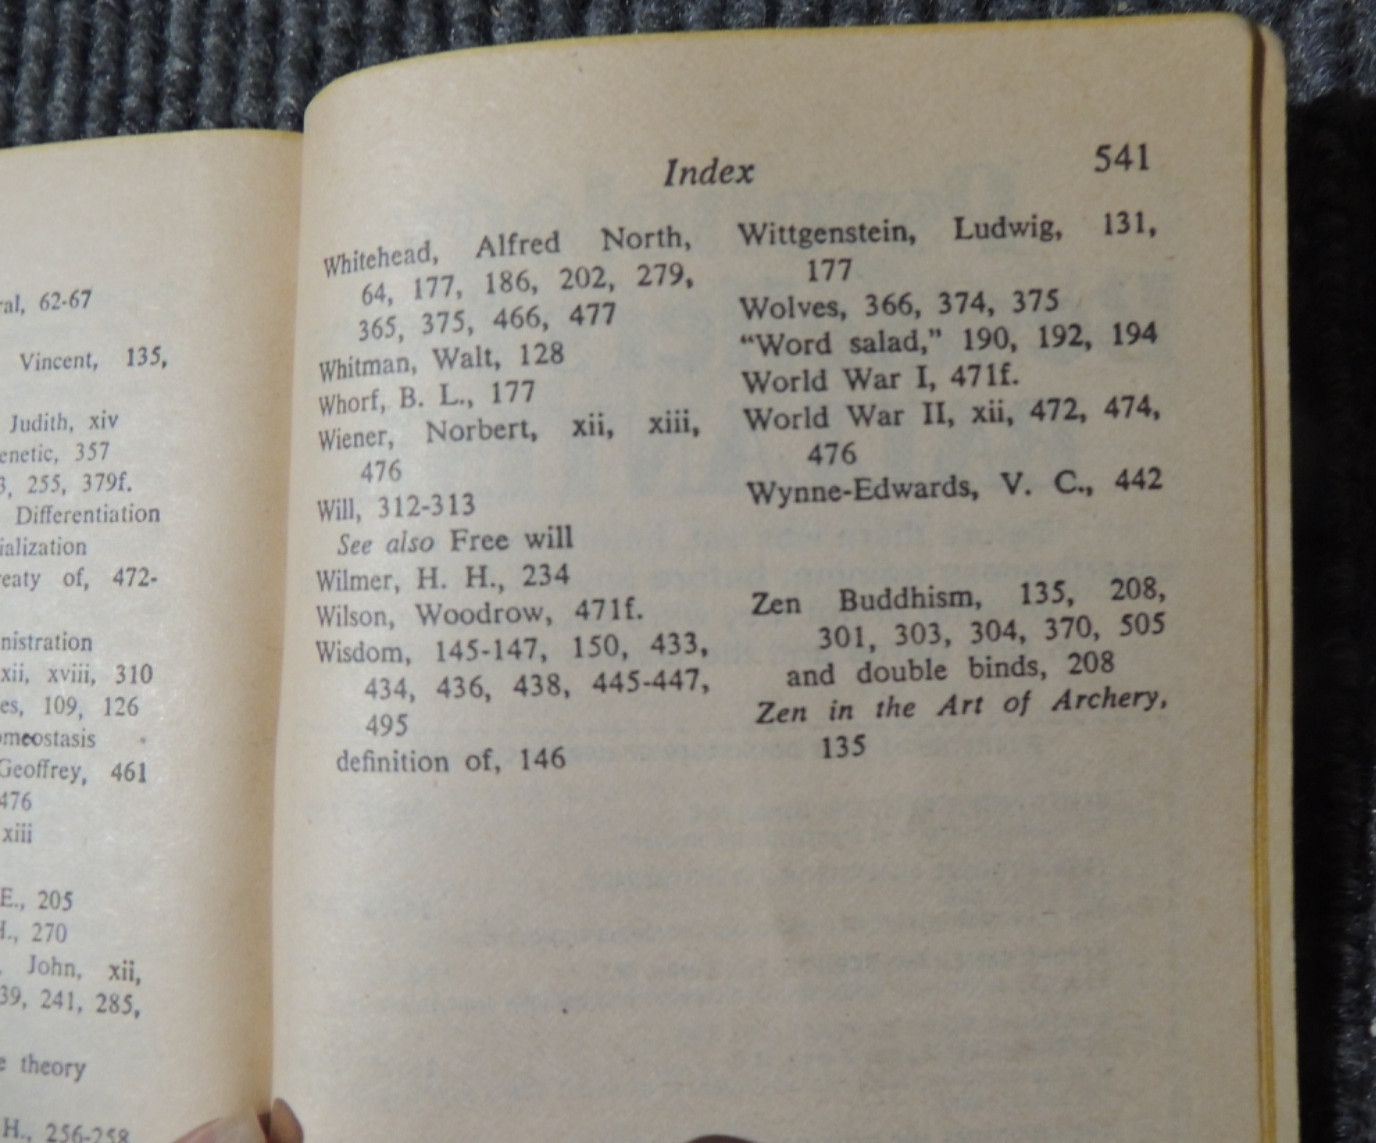 ral, 62-67
Vincent, 135,
Judith, xiv
enetic, 357
3, 255, 379f.
Differentiation
ialization
reaty of, 472-
nistration
xii, xviii, 310
es, 109, 126
omeostasis
Geoffrey, 461
476
xiii
E., 205
H., 270
John, xii,
39, 241, 285,
e theory
H., 256-258
Index
541
Whitehead, Alfred North,
64, 177, 186, 202, 279,
365, 375, 466, 477
Whitman, Walt, 128
Whorf, B. L., 177
Wiener, Norbert, xii, xiii,
476
Will, 312-313
See also Free will
Wilmer, H. H., 234
Wilson, Woodrow, 471f.
Wisdom, 145-147, 150, 433,
434, 436, 438, 445-447,
495
definition of, 146
Wittgenstein, Ludwig, 131,
177
Wolves, 366, 374, 375
“Word salad,” 190, 192, 194
World War I, 471f.
World War II, xii, 472, 474,
476
Wynne-Edwards, V. C., 442
Zen Buddhism, 135, 208,
301, 303, 304, 370, 505
and double binds, 208
Zen in the Art of Archery,
135